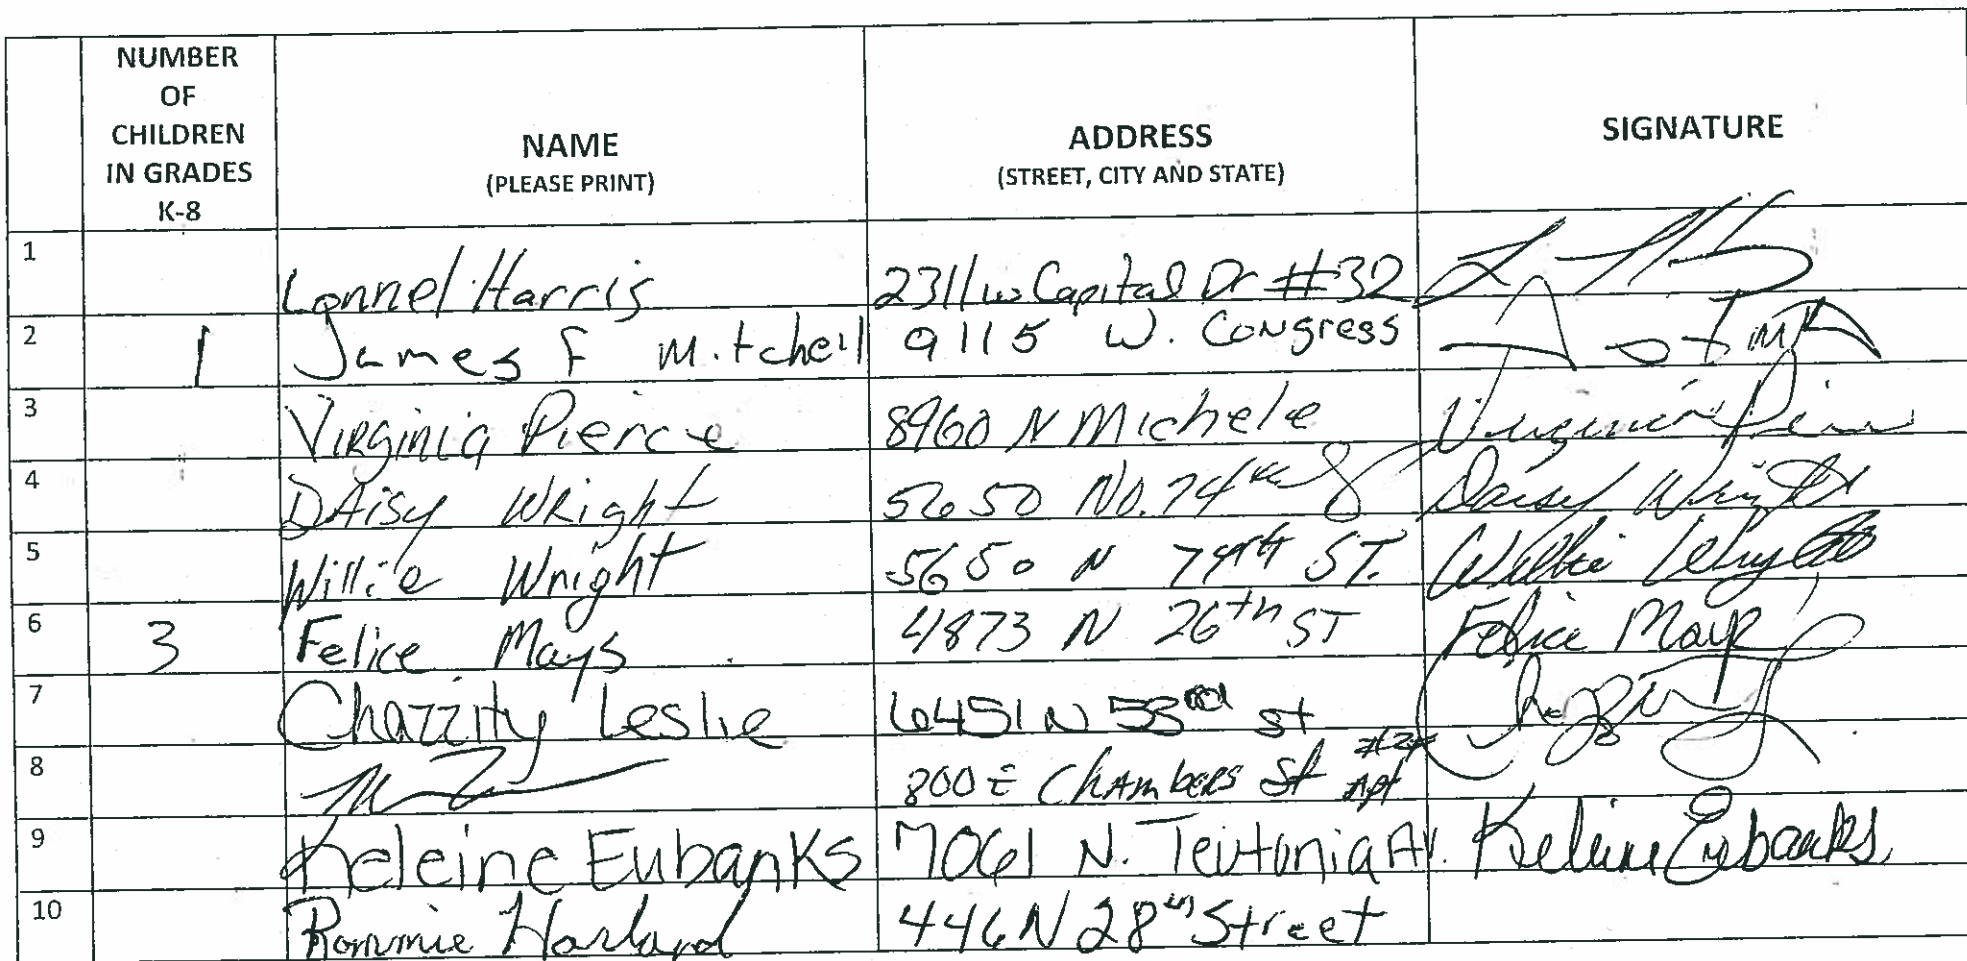 NUMBER
OF
CHILDREN
IN GRADES
K-8
NAME
(PLEASE PRINT)
ADDRESS
(STREET, CITY AND STATE)
SIGNATURE
1 Lonnel Harris 2311 w Capital Dr #32
2 1 James F Mitchell 9115 W. Congress
3 Virginia Pierce 8960 N Michele Virginia Pierce
4 DAisy WRight 5650 No. 74th Daisy Wright
5 Willie Wright 5650 N 74th ST. Willie Wright
6 3 Felice Mays 4873 N 26th ST Felice Mays
7 Chazzity Leslie 6451 N 53rd st Chazzity
8 800 E ChAmbers St Apt
9 Keleine Eubanks 7061 N. Teutonia Av. Keleine Eubanks
10 Rommie Harland 446 N 28th Street